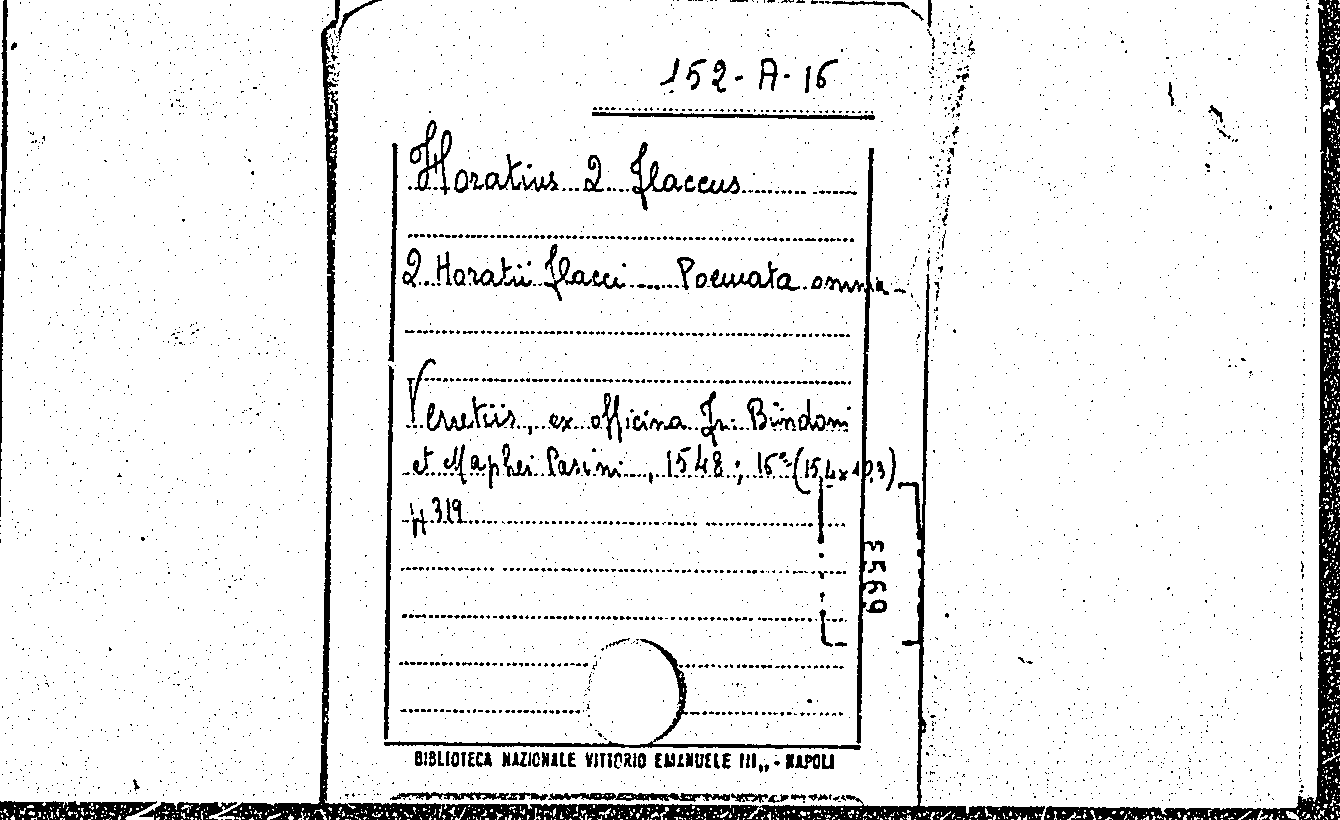 152-A-16
Horatius Q Flaccus
Q. Horatii Flacci ... Poemata omnia -
Venetiis, ex officina Fr. Bindoni
et Maphei Pasini, 1548; 16° (15,4x10,3)
H 319
6955
BIBLIOTECA NAZIONALE VITTORIO EMANUELE III„ - NAPOLI